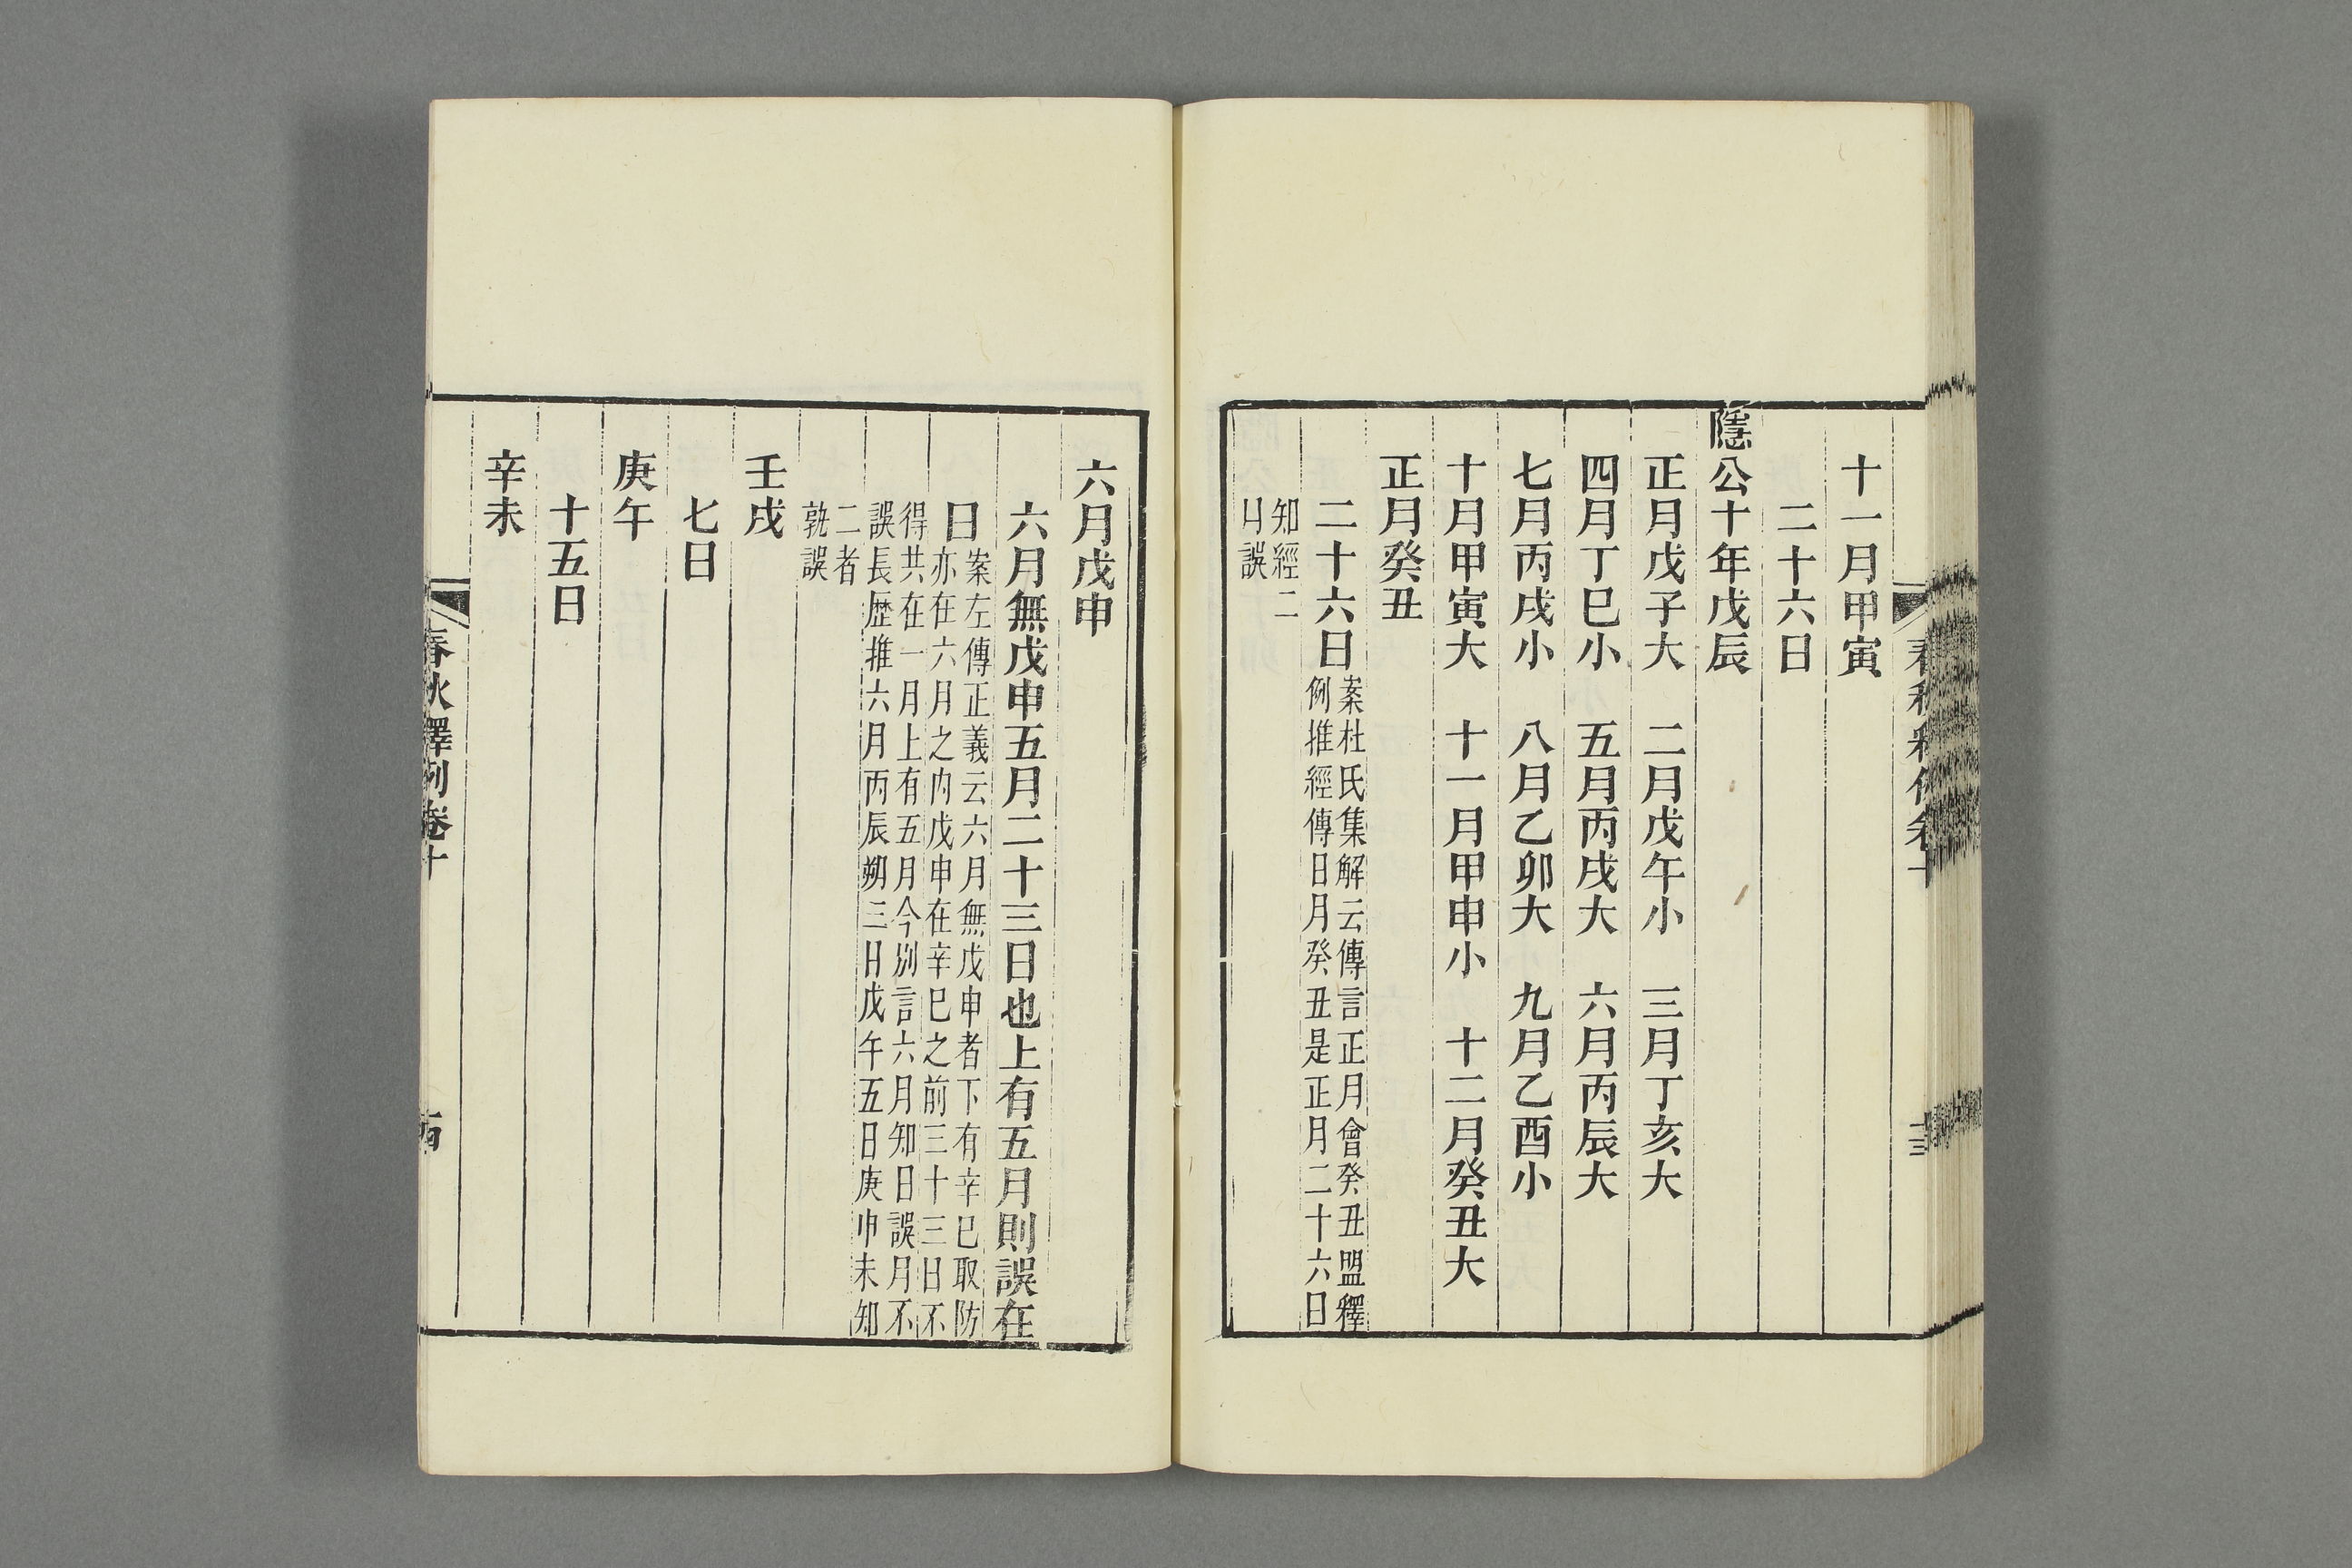 十一月甲寅
二十六日
隱公十年戊辰
正月戊子大　二月戊午小　三月丁亥大
四月丁巳小　五月丙戌大　六月丙辰大
七月丙戌小　八月乙卯大　九月乙酉小
十月甲寅大　十一月甲申小　十二月癸丑大
正月癸丑
二十六日案杜氏集解云傳言正月會癸丑盟釋
例推經傳日月癸丑是正月二十六日
知經二
月誤
六月戊申
六月無戊申五月二十三日也上有五月則誤在
日案左傳正義云六月無戊申者下有辛巳取防
亦在六月之内戊申在辛巳之前三十三日不
得共在一月上有五月今別言六月知日誤月不
誤長歷推六月丙辰朔三日戊午五日庚申未知
二者
孰誤
壬戌
七日
庚午
十五日
辛未
春秋釋例卷十